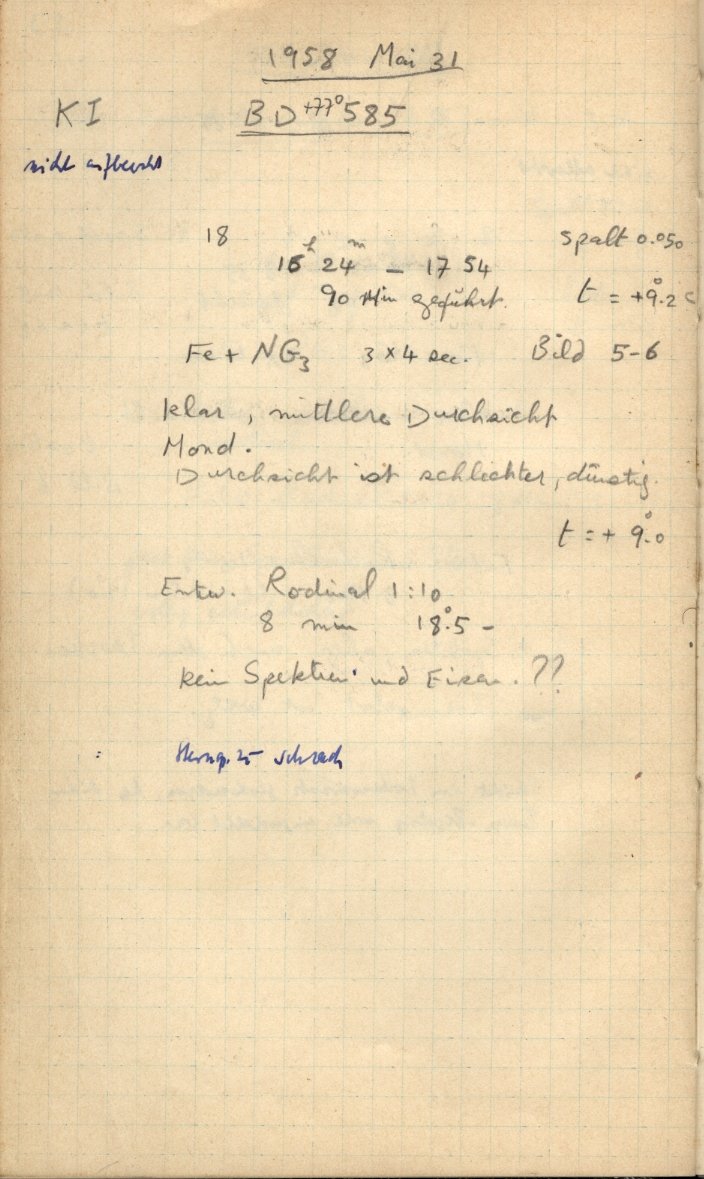 1958 Mai 31
KI BD +77° 585
nicht aufbewahrt
18 Spalt 0.050
16h 24m – 17 54
90 Min geführt. t = +9°.2 C
Fe + NG3 3 × 4 sec. Bild 5-6
klar, mittlere Durchsicht
Mond.
Durchsicht ist schlechter, dunstig.
t = + 9°.0
Entw. Rodinal 1:10
8 min 18°.5 –
kein Spektrum und Eisen. ??
schwach